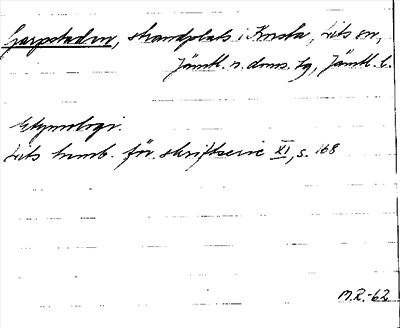 Garpstaden, strandplats i Korsta, Lits sn,
Jämtl. n. doms. tg, Jämtl. l.
Etymologi.
Lits hemb. för. skriftserie XI, s. 168
M.R.-62